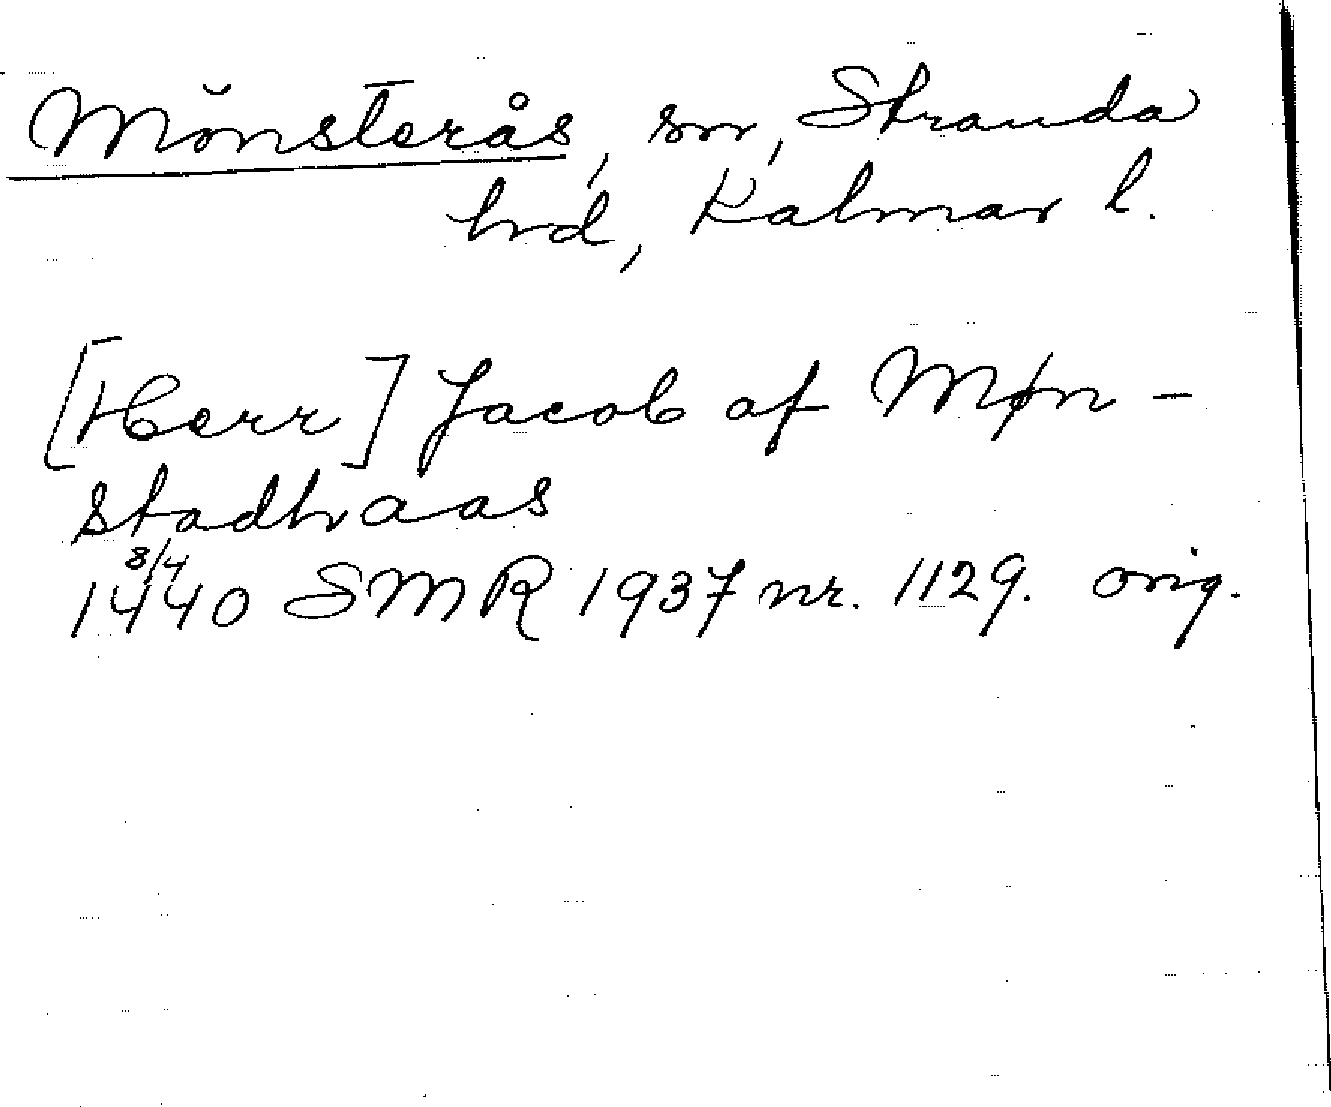 Mönsterås, sn, Stranda
hrd, Kalmar l.
[Herr] Jacob af Møn-
stadhraas
1440 8/4 SMR 1937 nr. 1129. orig.